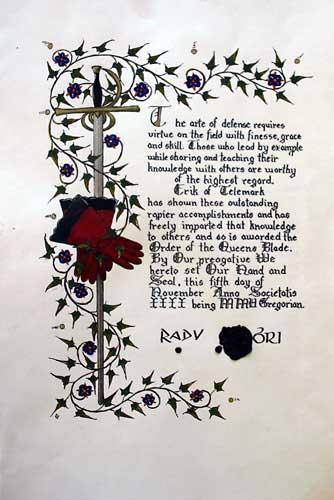 The arts of defense requires
virtue on the field with finesse, grace
and skill. Those who lead by example
while sharing and teaching their
knowledge with others are worthy
of the highest regard.
Erik of Telemark
has shown these outstanding
rapier accomplishments and has
freely imparted that knowledge
to others and so is awarded the
Order of the Queens Blade.
By Our preogative We
hereto set Our Hand and
Seal, this fifth day of
November Anno Societatis
being Gregorian.
RADU